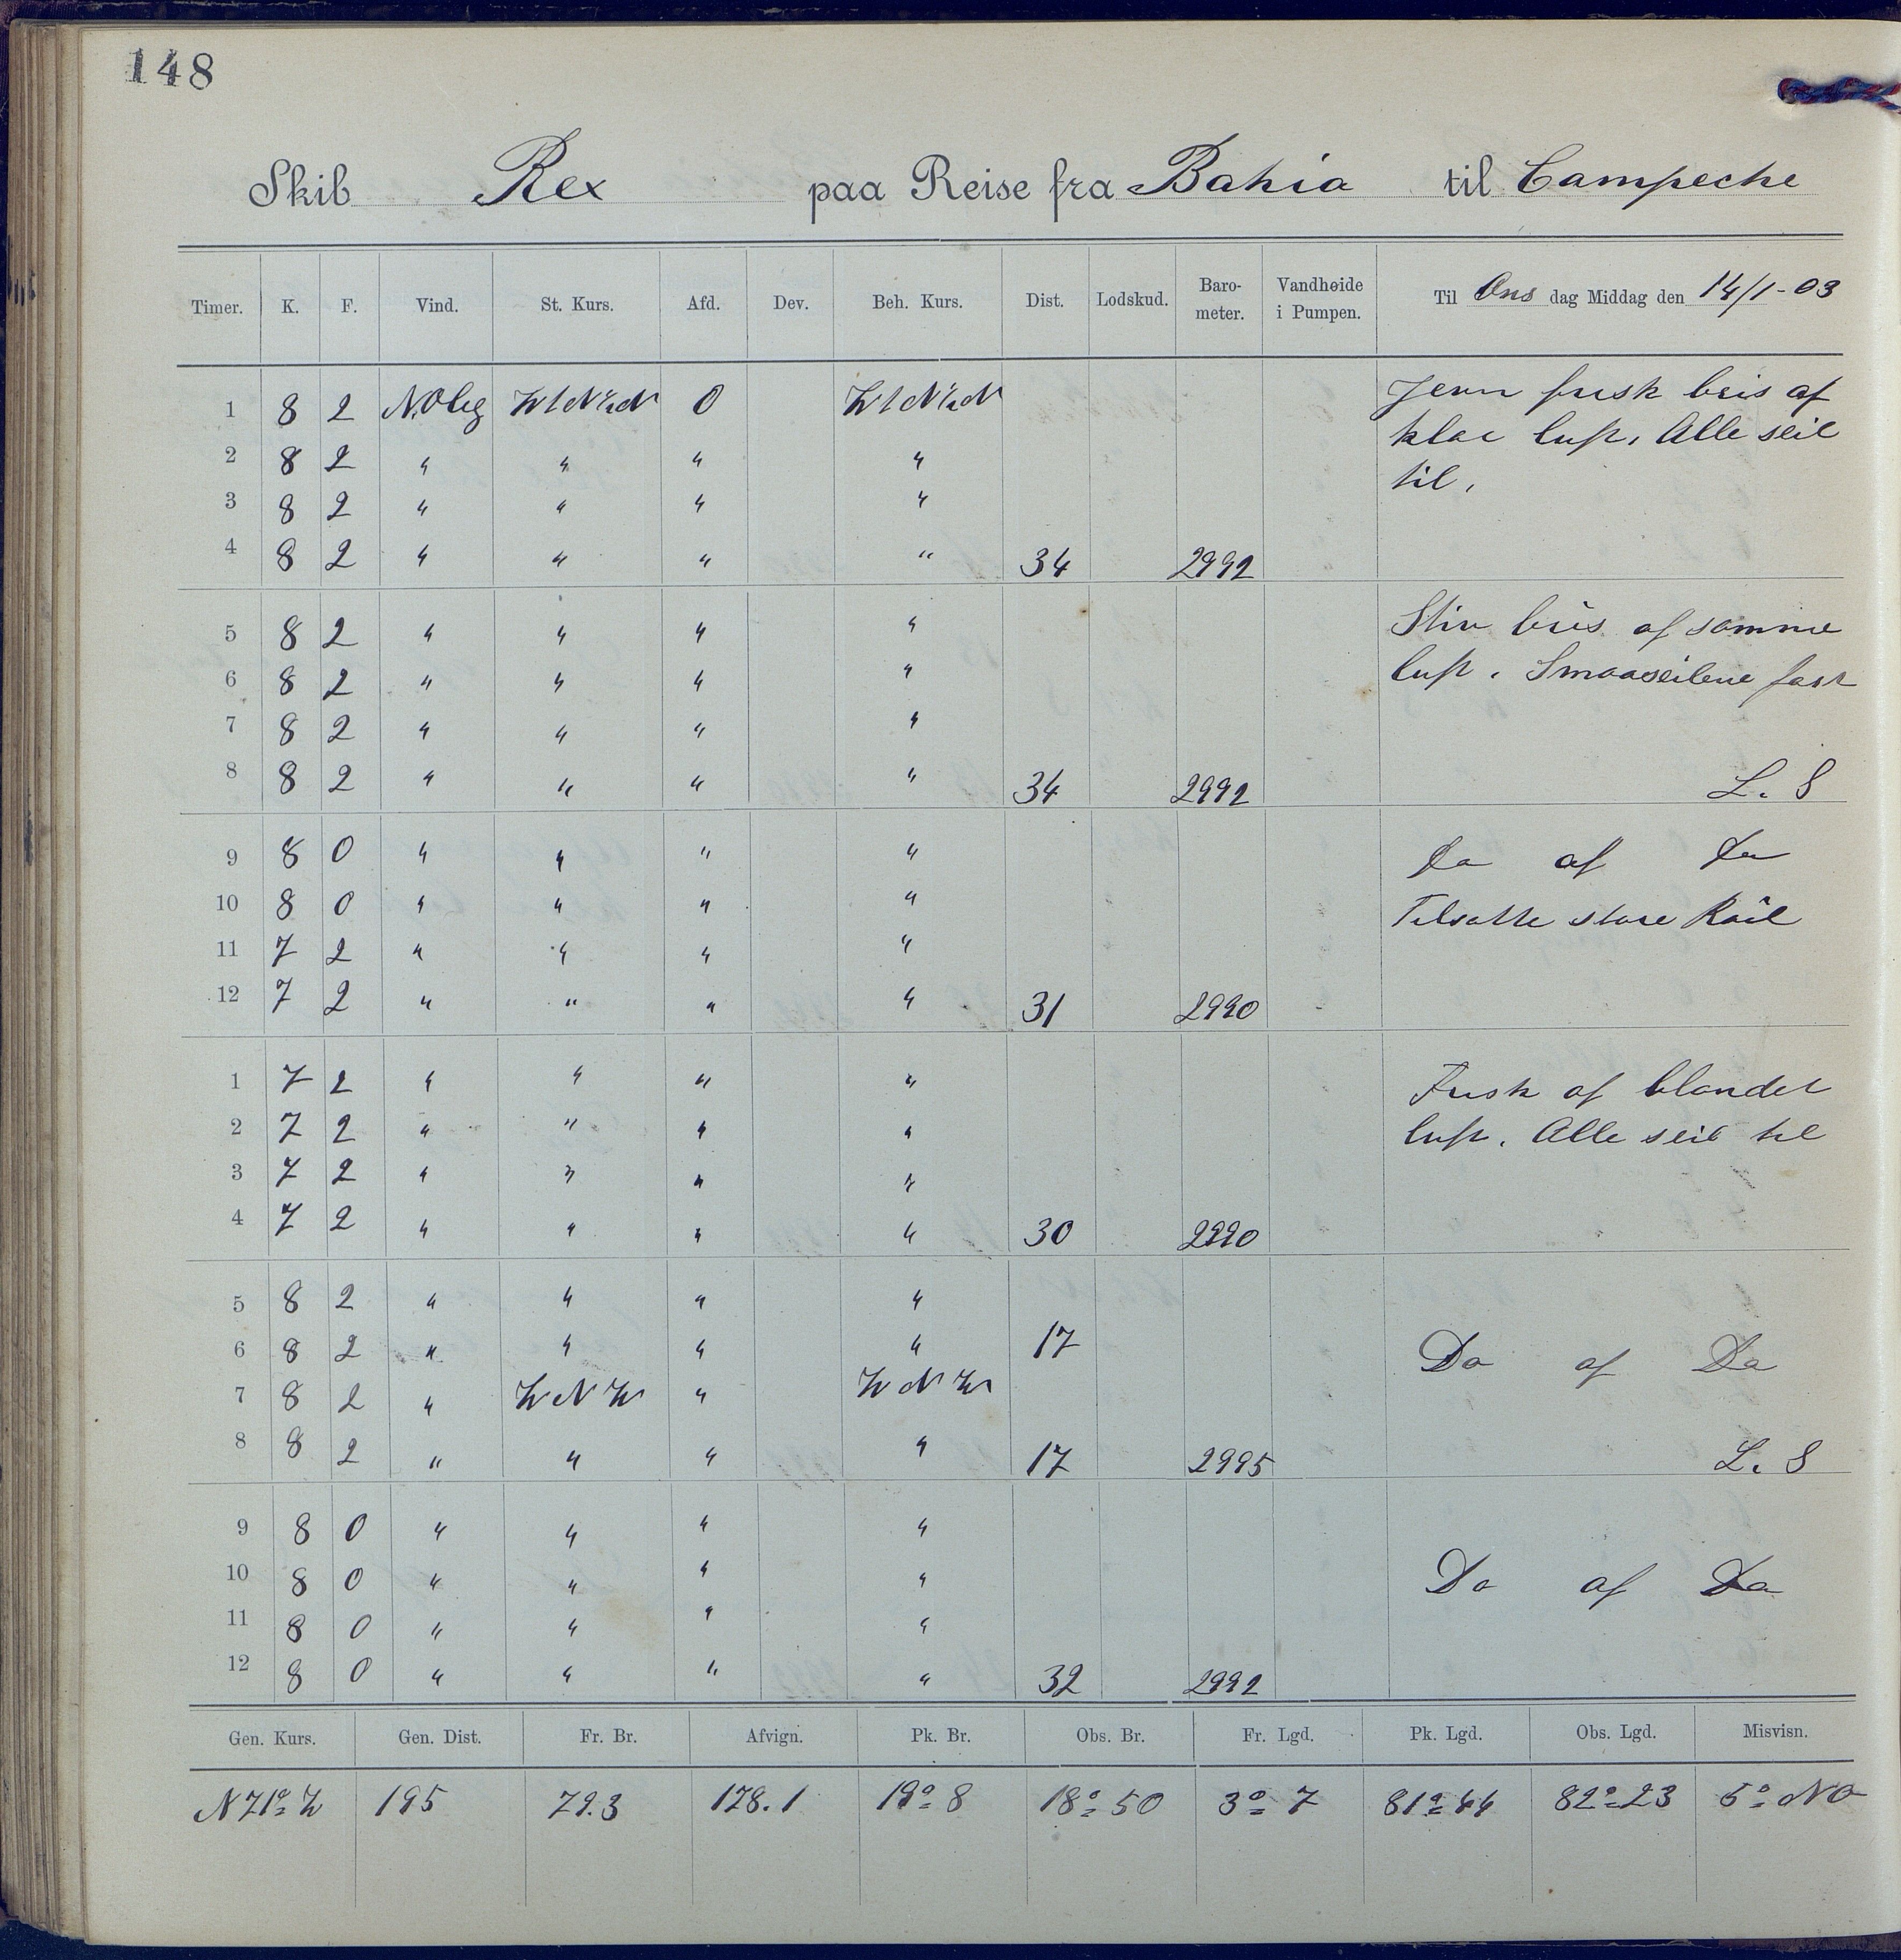 148
Skib Rex paa Reise fra Bahia til Campeche
Timer. K. F. Vind. St. Kurs. Afd. Dev. Beh. Kurs. Dist. Lodskud. Baro-meter. Vandhøide i Pumpen. Til Ons dag Middag den 14/1-03
1 8 2 N.Olig WtN½N 0 WtN½N Jevn frisk bris af
2 8 2 " " " " klar luft. Alle seil
3 8 2 " " " " til.
4 8 2 " " " " 34 2992
5 8 2 " " " " Stiv bris af samme
6 8 2 " " " " luft. Smaaseilene fast
7 8 2 " " " "
8 8 2 " " " " 34 2992 L. S
9 8 0 " " " " Do af Do
10 8 0 " " " " Tilsatte store Röil
11 7 2 " " " "
12 7 2 " " " " 31 2990
1 7 2 " " " " Frisk af blandet
2 7 2 " " " " luft. Alle seil til
3 7 2 " " " "
4 7 2 " " " " 30 2990
5 8 2 " " " "
6 8 2 " " " " 17 Do af Do
7 8 2 " WNW " WNW
8 8 2 " " " " 17 2995 L. S
9 8 0 " " " "
10 8 0 " " " " Do af Do
11 8 0 " " " "
12 8 0 " " " " 32 2992
Gen. Kurs. Gen. Dist. Fr. Br. Afvign. Pk. Br. Obs. Br. Fr. Lgd. Pk. Lgd. Obs. Lgd. Misvisn.
N 71° W 195 79.3 178.1 19° 8 18° 50 3° 7 81° 44 82° 23 5° NO